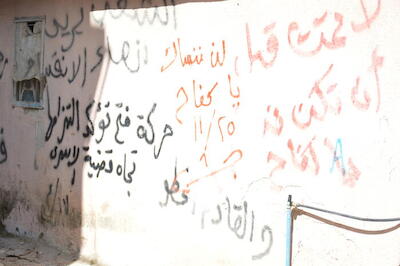 الشعب يريد
انهاء الانقسام
حركة فتح تؤكد التزامها
تجاه قضية الاسرى
لن ننساك
يا كفاح
١١/٢٥
لا تمت قبل
أن تكون قد
والقادم